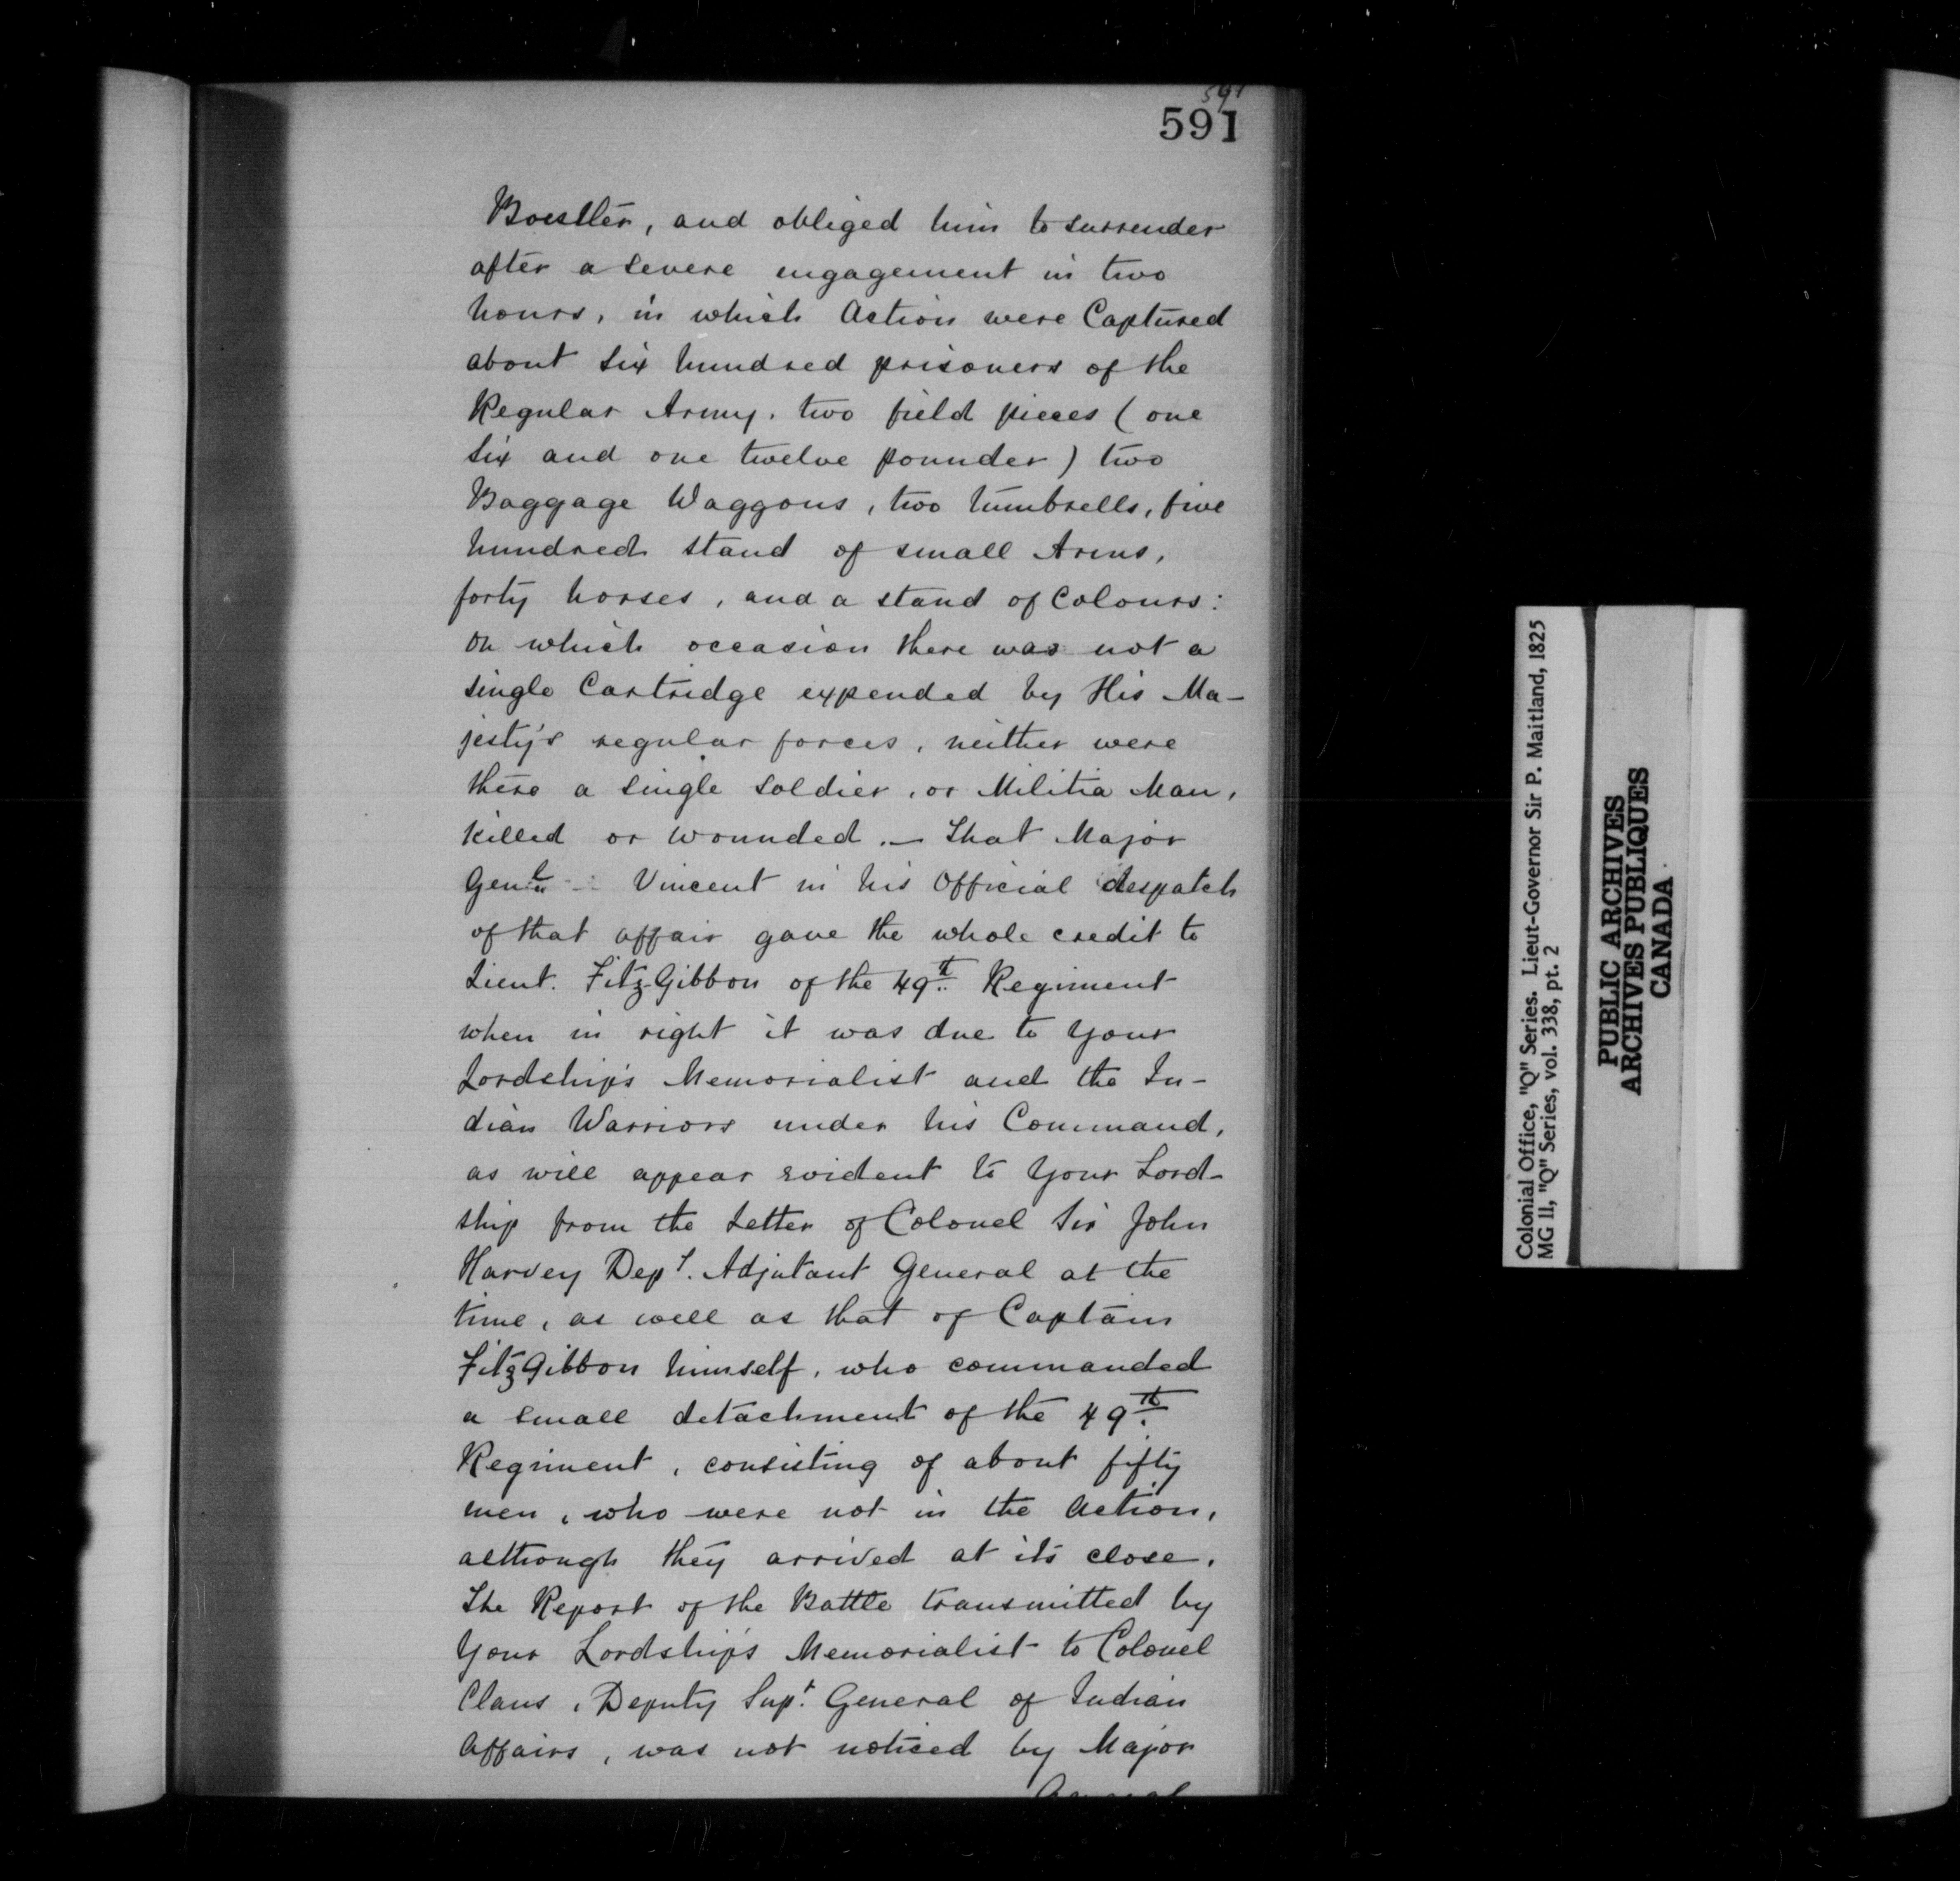 591
591
Boestler, and obliged him to surrender
after a severe engagement in two
hours, in which Action were Captured
about six hundred prisoners of the
Regular Army, two field pieces (one
six and one twelve pounder) two
Baggage Waggons, two tumbrells, five
hundred stand of small Arms,
forty horses, and a stand of Colours:
On which occasion there was not a
single Cartridge expended by His Ma-
jesty's regular forces, neither were
there a single soldier, or Militia Man,
killed or wounded. — That Major
Genl. Vincent in his Official despatch
of that affair gave the whole credit to
Lieut. FitzGibbon of the 49th. Regiment
when in right it was due to Your
Lordship's Memorialist and the In-
dian Warriors under his Command,
as will appear evident to Your Lord-
ship from the Letter of Colonel Sir John
Harvey Dept. Adjutant General at the
time, as well as that of Captain
FitzGibbon himself, who commanded
a small detachment of the 49th.
Regiment, consisting of about fifty
men, who were not in the Action,
although they arrived at its close.
The Report of the Battle transmitted by
Your Lordship's Memorialist to Colonel
Claus, Deputy Supt. General of Indian
Affairs, was not noticed by Major
General
Colonial Office, "Q" Series. Lieut-Governor Sir P. Maitland, 1825
MG 11, "Q" Series, vol. 338, pt. 2
PUBLIC ARCHIVES
ARCHIVES PUBLIQUES
CANADA